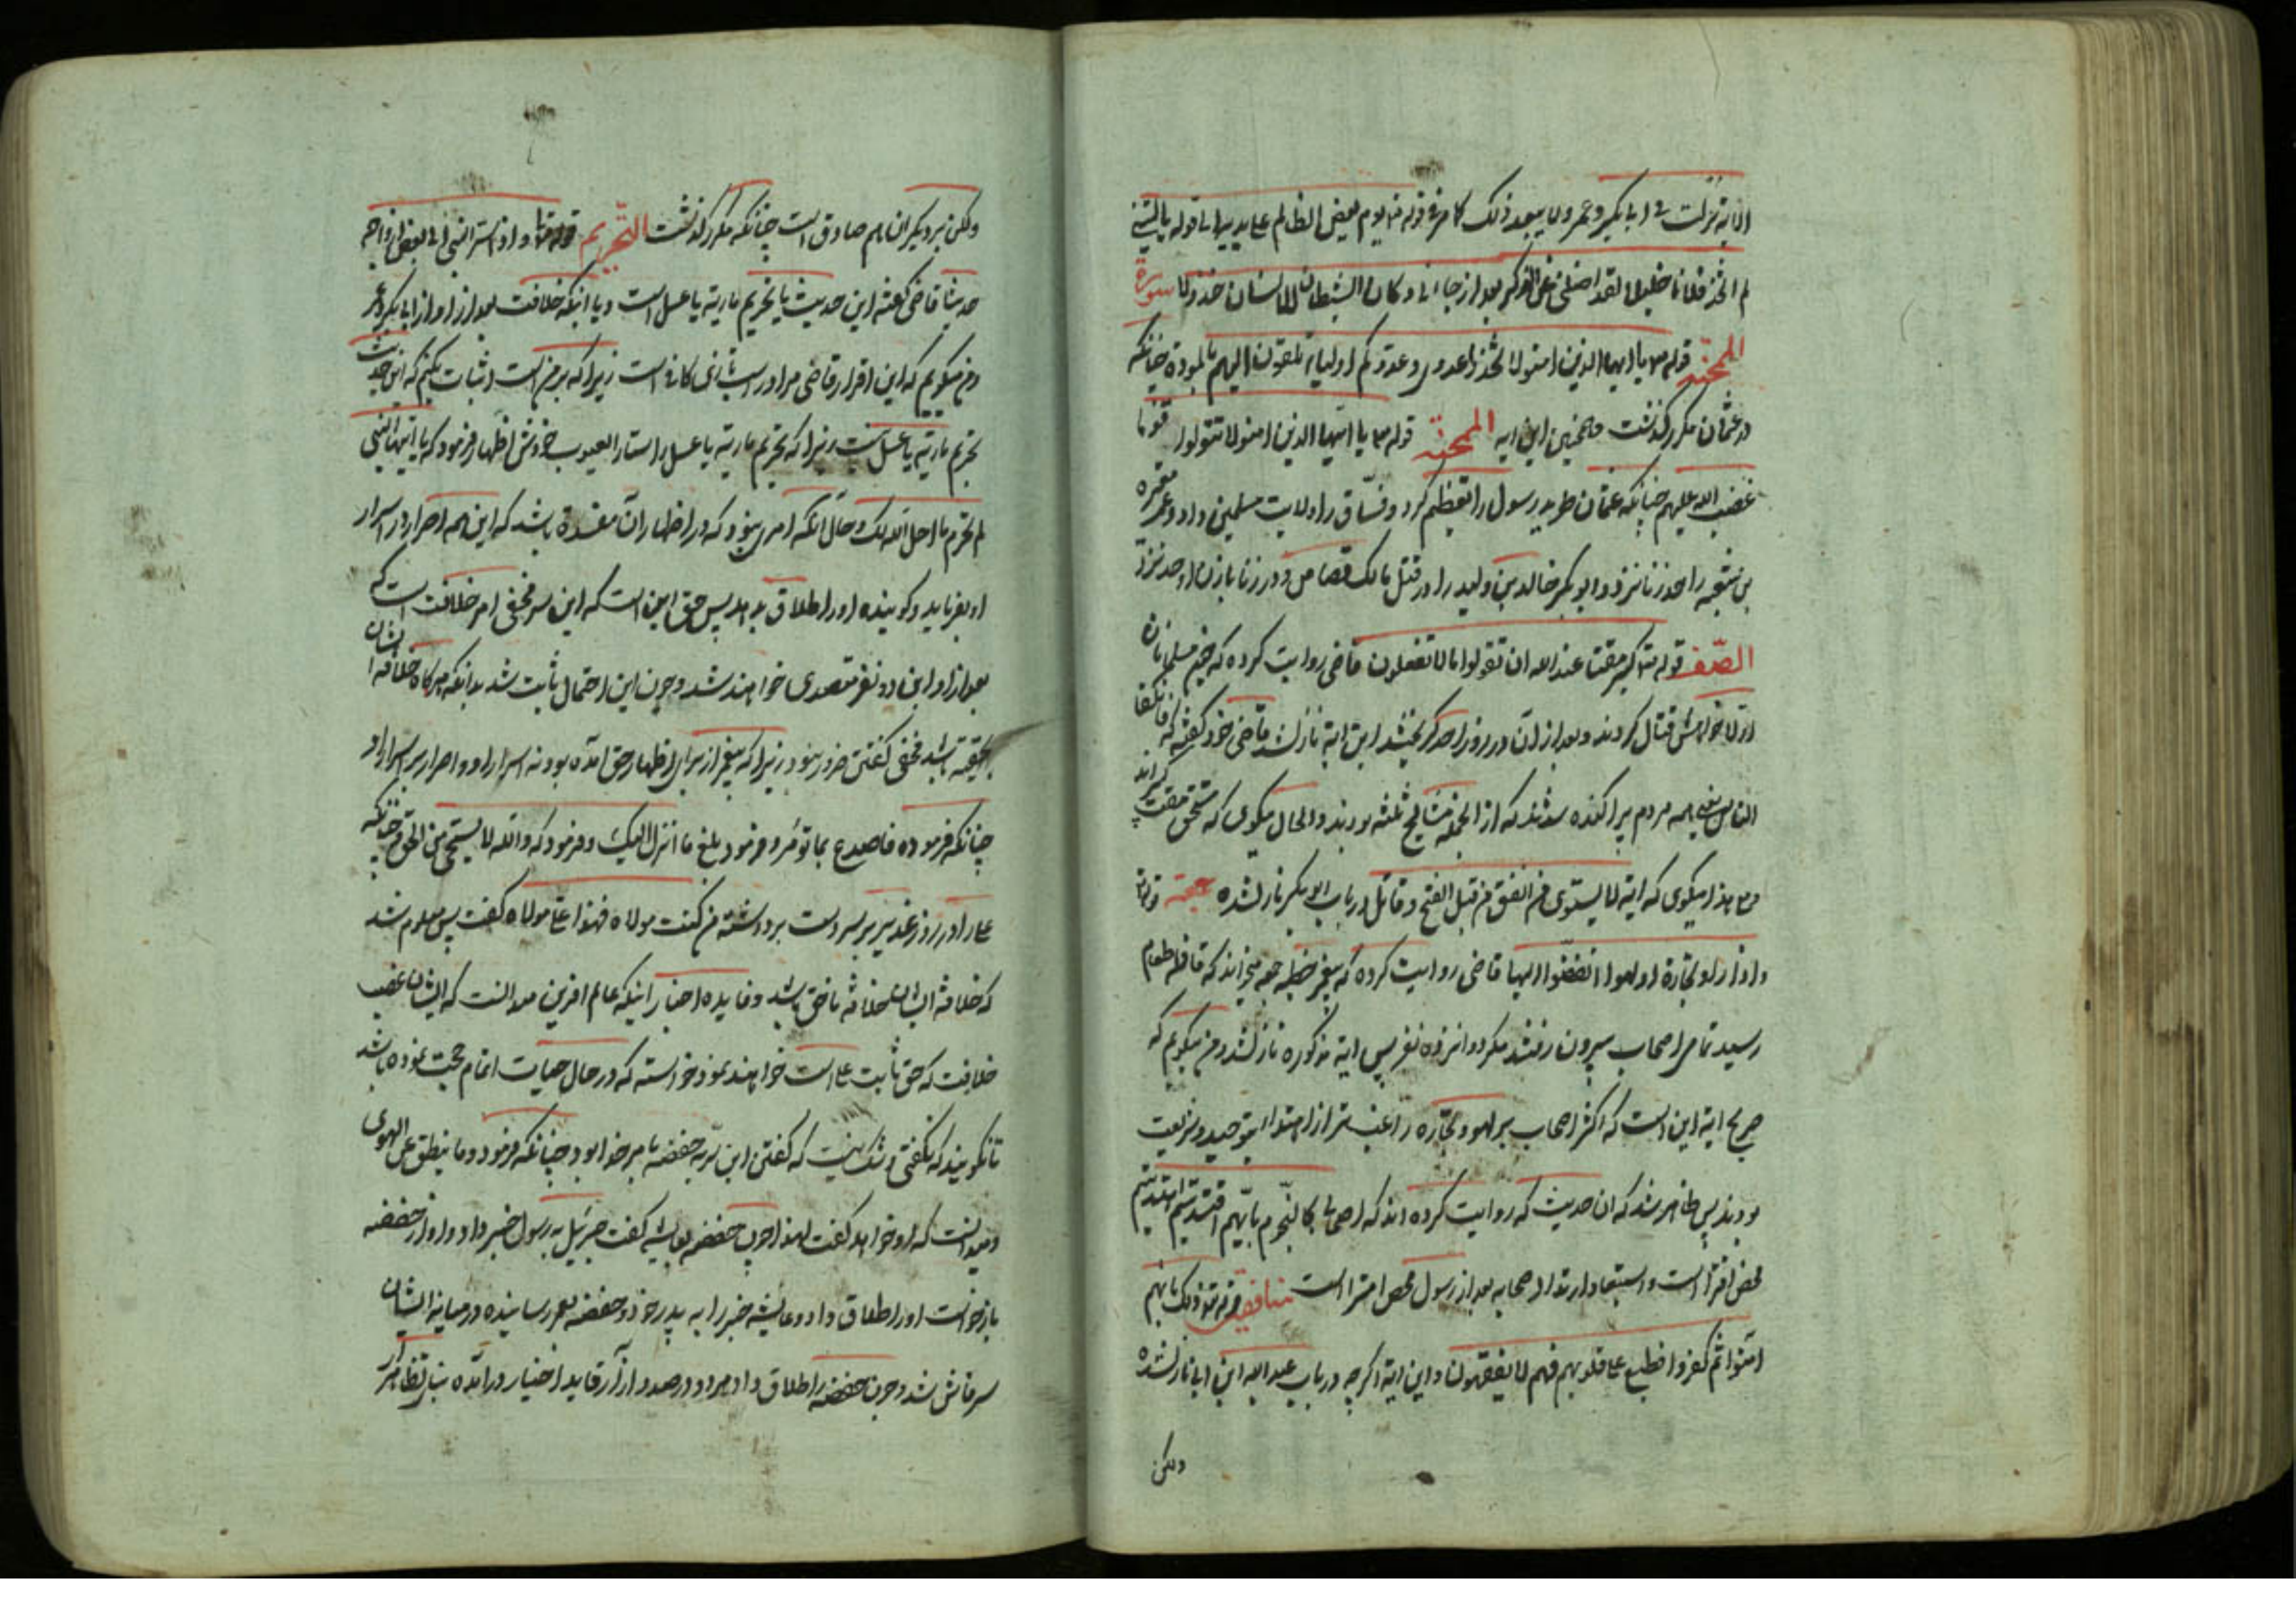 الایة نزلت فی ابابکر وعمر ولا یبعد ذلک کما مر فی قوله تع یوم یعض الظالم علی یدیه الی قوله یا لیتنی
لم اتخذ فلانا خلیلا لقد اضلنی عن الذکر بعد از جاءنی وکان الشیطان للانسان خذولا سورة
الممتحنه قوله تع یا ایها الذین امنوا لا تتخذوا عدوی وعدوکم اولیاء تلقون الیهم بالمودة چنانکه
در عثمان مکرر کذشت همچنین این ایه الممتحنه قوله تع یا ایها الذین امنوا لا تتولوا قوما
غضب الله علیهم چنانکه عثمان طرید رسول را تعظیم کرد وفساق را ولایت مسلمین داد وعمر مغیره
بن شعبه را حد زنا نزد وابوبکر خالد بن ولید را در قتل مالک قصاص ودر زنا با زن او حد نزد
الصف قوله تع کبر مقتا عند الله ان تقولوا ما لا تفعلون قاضی روایت کرده که چون مسلمانان
اولا خواهش قتال کردند وبعد از ان در روز احد کریختند این ایة نازل شد قاضی خود کفته که فانکفا
الناس یعنی همه مردم پراکنده شدند که از انجمله مشایخ ثلثه بودند والحال میکوی که مستحق مقت کبر اند
ومع هذا میکوی که ایة لا یستوی من انفق من قبل الفتح وقاتل در باب ابوبکر نازل شده جمعه قوله تع
واذا راو تجارة او لهوا انفضوا الیها قاضی روایت کرده که پیغمبر خطبه جمعه میخواند که قافله طعام
رسید تمامی اصحاب بیرون رفتند مکر دوانزده نفر پس ایة مذکوره نازل شد ومن میکویم که
صریح ایة این است که اکثر اصحاب بر لهو وتجاره راغب تر از اهتدا بتوحید وشریعت
بودند پس ظاهر شد که ان حدیث که روایت کرده اند که اصحابی کالنجوم بایهم اقتدیتم اهتدیتم
محض افترا است واستبعاد ارتداد صحابه بعد از رسول محض امترا است منافقین قوله تع ذلک بانهم
امنوا ثم کفروا فطبع علی قلوبهم فهم لا یفقهون واین ایة اکرچه در باب عبد الله ابن ابی نازل شده
ولکن
ولکن بر دیکران هم صادق است چنانکه مکرر کذشت التحریم قوله تعا واذ اسر النبی الی بعض ازواجه
حدیثا قاضی کفته این حدیث یا تحریم ماریه یا عسل است ویا انکه خلافت بعد از او از ابابکر وعمر
ومن میکویم که این اقرار قاضی مرا در اثبات کافی است زیرا که بر من است اثبات بکنم که این حدیث
تحریم ماریه یا عسل نیست زیرا که تحریم ماریه یا عسل را ستار العیوب خودش اظهار فرمود که یا ایها النبی
لم تحرم ما احل الله لک وحال انکه امری نبود که در اظهار ان مفسده باشد که این همه اصرار در اسرار
او بفرماید وکوینده او را طلاق بدهد پس حق این است که این سر مخفی امر خلافت است که
بعد از او این دو نفر متصدی خواهند شد وچون این احتمال ثابت شد بدانکه هرکاه خلافه ایشان
بحقیقة باشد مخفی کفتن ضرور نبود زیرا که پیغمبر از برای اظهار حق امده بود نه اسرار او واصرار بر اسرار او
چنانکه فرموده فاصدع بما تؤمر وفرمود بلغ ما انزل الیک وفرمود که والله لا یستحیی من الحق وچنانکه
علی را در روز غدیر بر سر دست برداشته من کنت مولاه فهذا علی مولاه کفت پس معلوم شد
که خلافة ایشان خلافة ناحق باشد وفایده اخبار اینکه عالم افرین میدانست که ایشان غصب
خلافت که حق ثابت علی است خواهند نمود خواسته که در حال حیات اتمام حجت نموده باشد
تا نکویند که نکفتی وشک نیست که کفتن این سر به حفصه بامر خدا بود چنانکه فرمود وما ینطق عن الهوی
ومیدانست که او خواهد کفت لهذا چون حفصه بعایشه کفت جبرئیل به رسول خبر داد واو از حفصه
بازخواست او را طلاق داد وعایشه خبر را به پدر خود وحفصه بعمر رسانیده در میانه ایشان
سر فاش شد وچون حفصه را طلاق داد هر دو درصدد ازار قاید اخیار درآمده بنای تظاهر